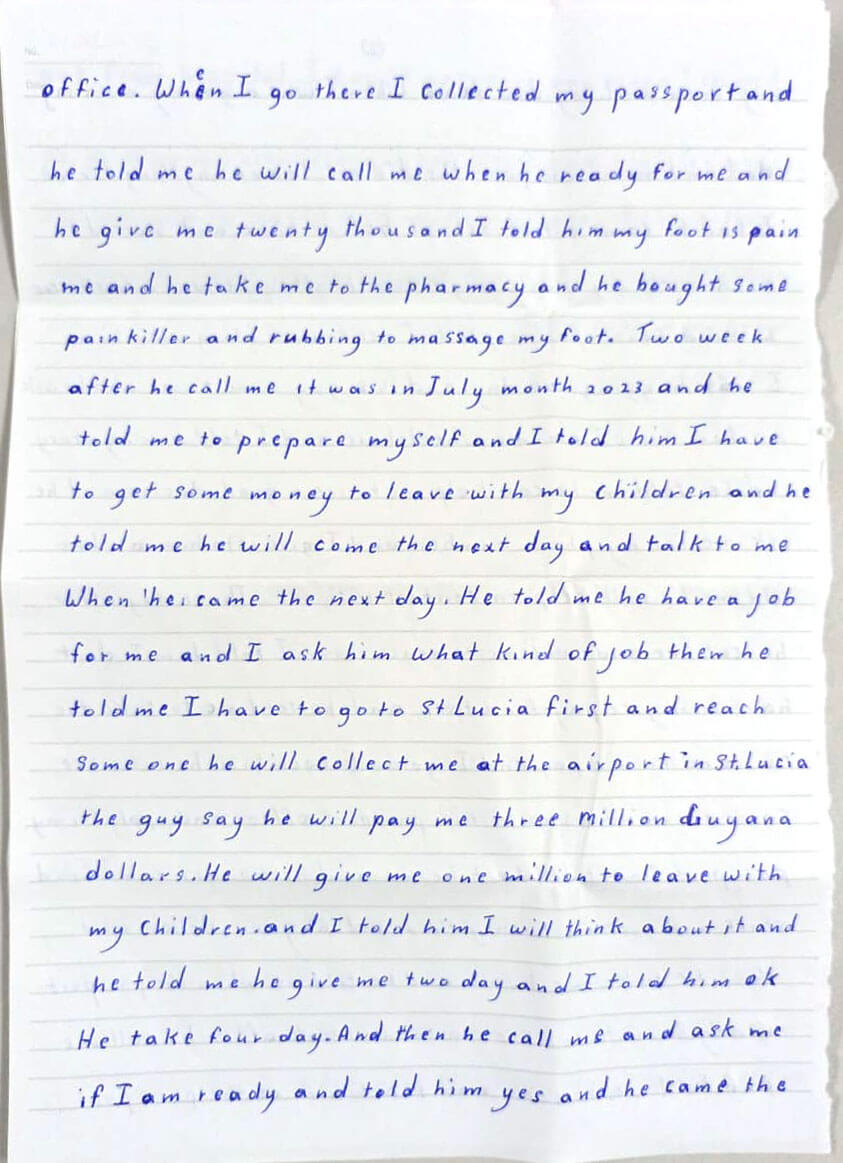 office. When I go there I collected my passport and
he told me he will call me when he ready for me and
he give me twenty thousand I told him my foot is pain
me and he take me to the pharmacy and he bought some
pain killer and rubbing to massage my foot. Two week
after he call me it was in July month 2023 and he
told me to prepare myself and I told him I have
to get some money to leave with my children and he
told me he will come the next day and talk to me
When he came the next day. He told me he have a job
for me and I ask him what kind of job then he
told me I have to go to St Lucia first and reach
some one he will collect me at the airport in St. Lucia
the guy say he will pay me three million Guyana
dollars. He will give me one million to leave with
my children. and I told him I will think about it and
he told me he give me two day and I told him ok
He take four day. And then he call me and ask me
if I am ready and told him yes and he came the